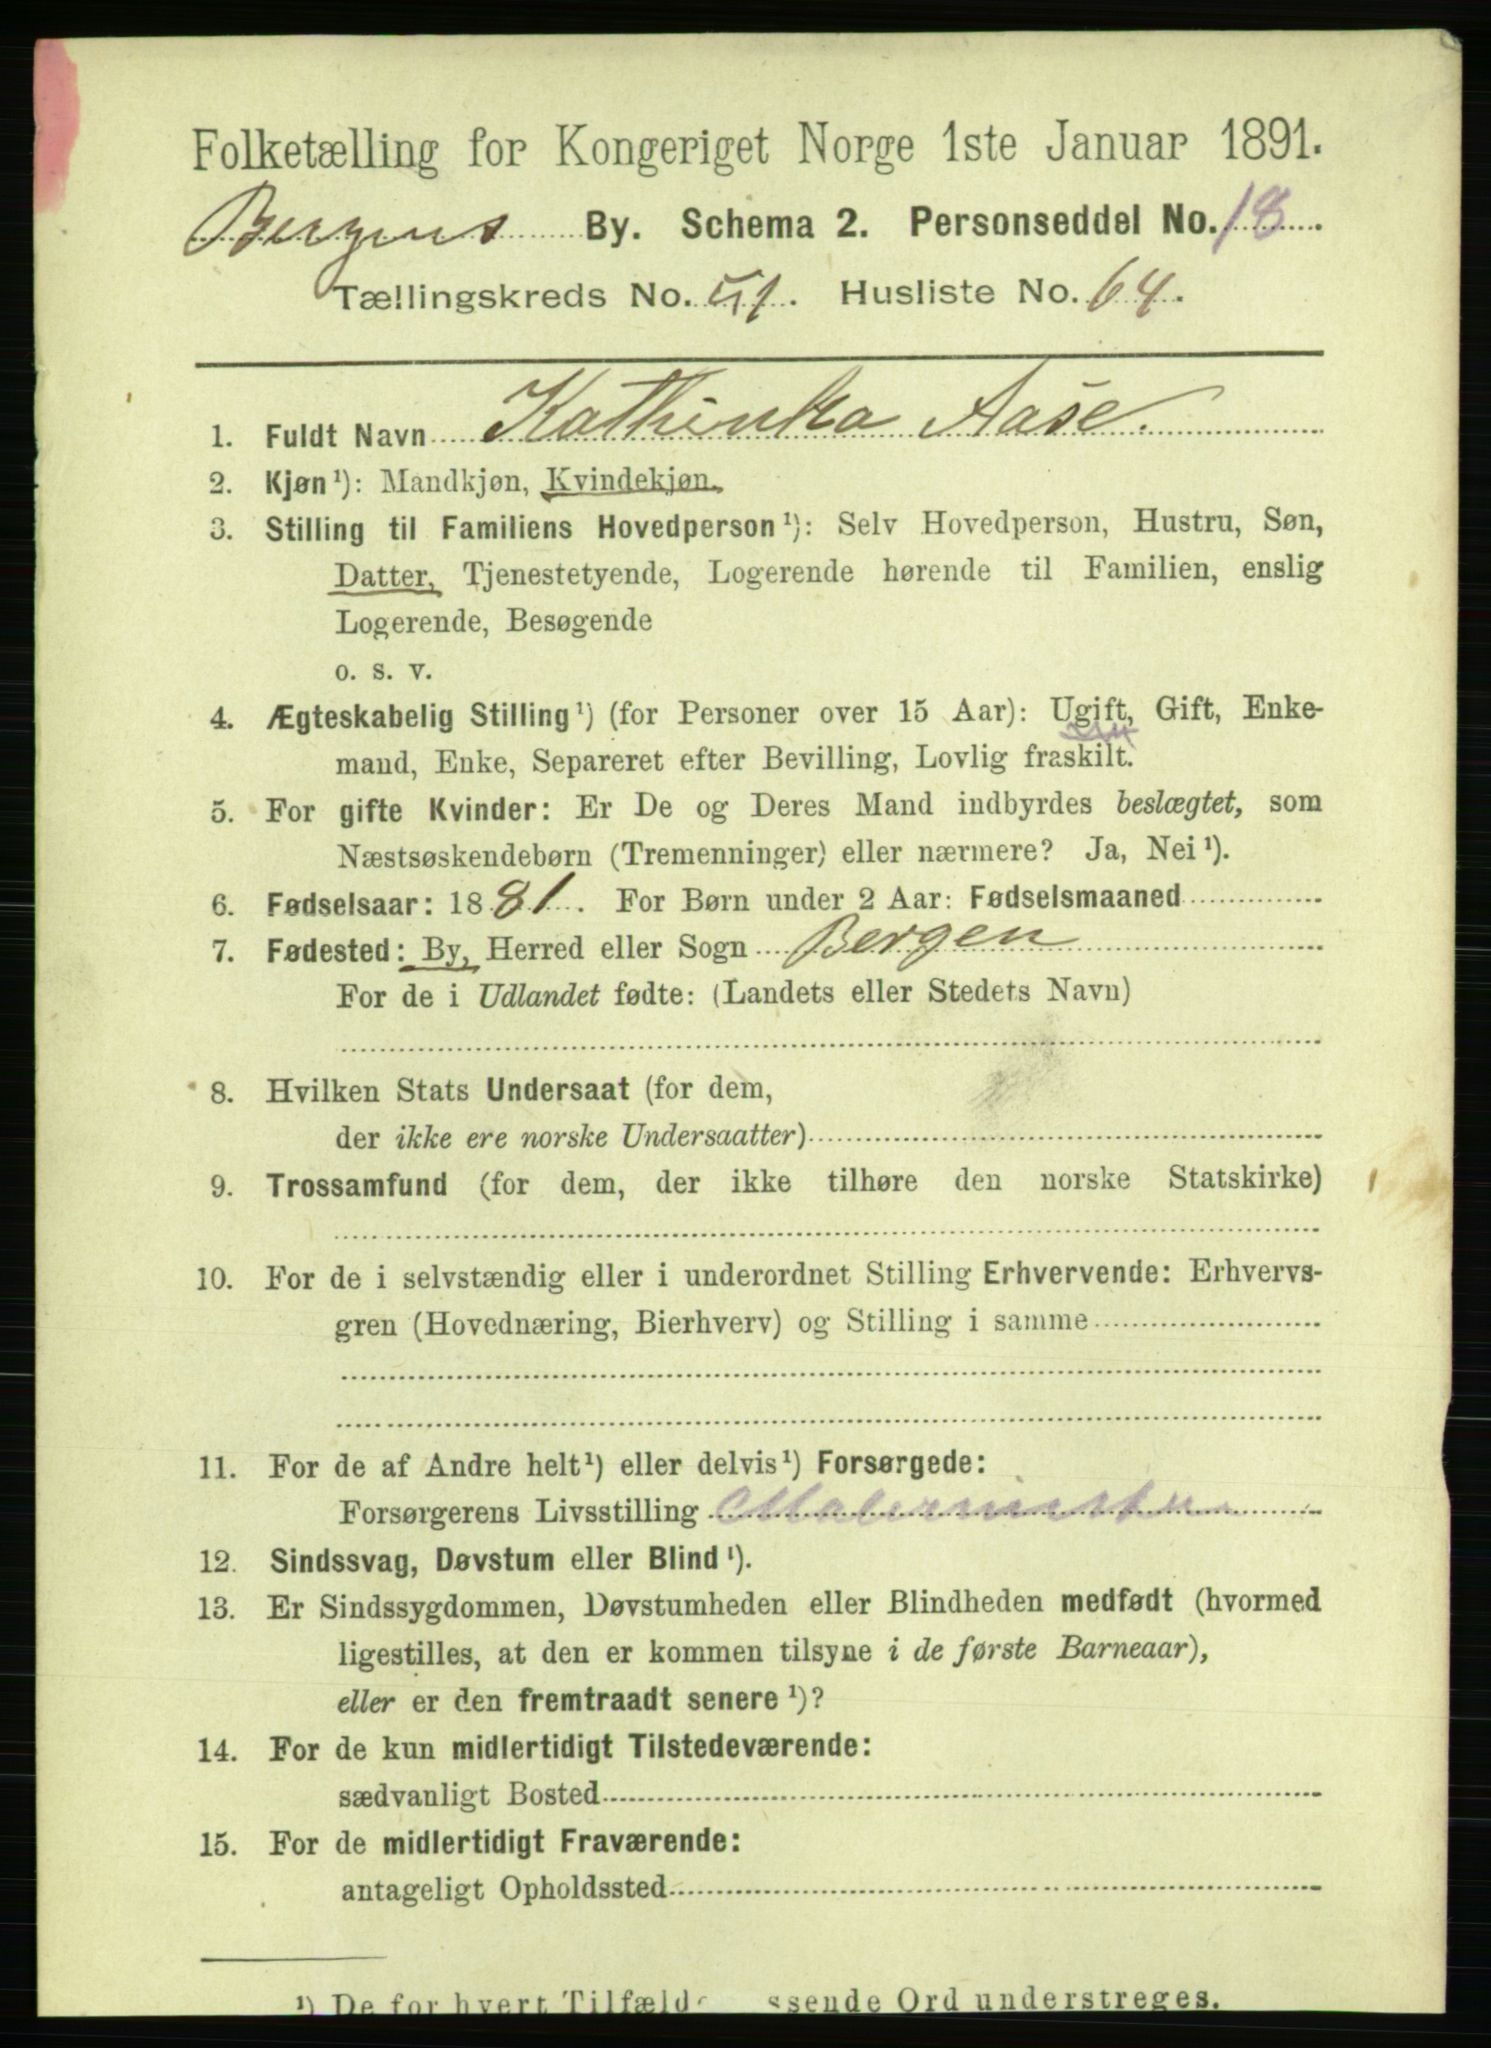 Folketælling for Kongeriget Norge 1ste Januar 1891.
Bergens By. Schema 2. Personseddel No. 18.
Tællingskreds No. 51. Husliste No. 64.
1. Fuldt Navn Kathinka Aase.
2. Kjøn¹): Mandkjøn, Kvindekjøn.
3. Stilling til Familiens Hovedperson¹): Selv Hovedperson, Hustru, Søn,
Datter, Tjenestetyende, Logerende hørende til Familien, enslig
Logerende, Besøgende
o. s. v.
4. Ægteskabelig Stilling¹) (for Personer over 15 Aar): Ugift, Gift, Enke-
mand, Enke, Separeret efter Bevilling, Lovlig fraskilt.
5. For gifte Kvinder: Er De og Deres Mand indbyrdes beslægtet, som
Næstsøskendebørn (Tremenninger) eller nærmere? Ja, Nei¹).
6. Fødselsaar: 1881. For Børn under 2 Aar: Fødselsmaaned
7. Fødested: By, Herred eller Sogn Bergen
For de i Udlandet fødte: (Landets eller Stedets Navn)
8. Hvilken Stats Undersaat (for dem,
der ikke ere norske Undersaatter)
9. Trossamfund (for dem, der ikke tilhøre den norske Statskirke)
10. For de i selvstændig eller i underordnet Stilling Erhvervende: Erhvervs-
gren (Hovednæring, Bierhverv) og Stilling i samme
11. For de af Andre helt¹) eller delvis¹) Forsørgede:
Forsørgerens Livsstilling
12. Sindssvag, Døvstum eller Blind¹).
13. Er Sindssygdommen, Døvstumheden eller Blindheden medfødt (hvormed
ligestilles, at den er kommen tilsyne i de første Barneaar),
eller er den fremtraadt senere¹)?
14. For de kun midlertidigt Tilstedeværende:
sædvanligt Bosted
15. For de midlertidigt Fraværende:
antageligt Opholdssted
¹) De for hvert Tilfælde ssende Ord understreges.